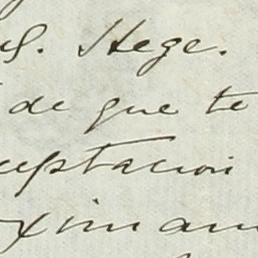 Hege.
de que te
ceptacion
oximam